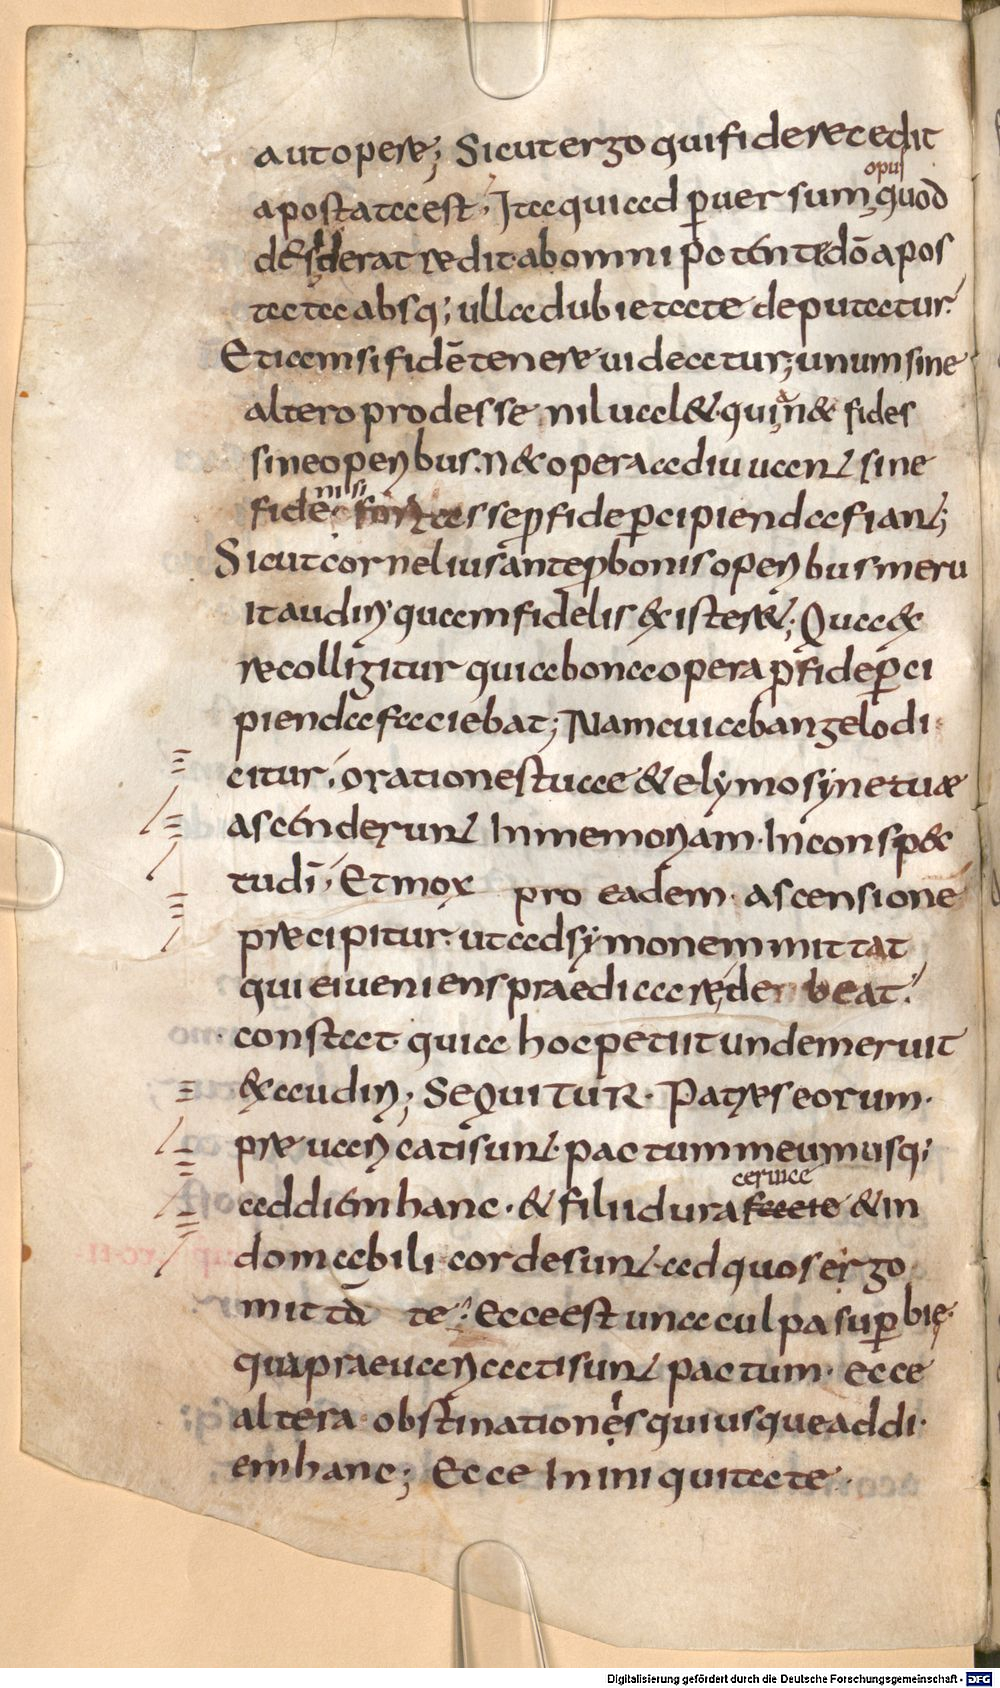 aut opere; Sicut ergo qui fide recedit
apostata est; Ita qui ad peruersum opus quod
deserderat redit ab omnipotente dō apos
tata absq; ulla dubietate deputatur.
Etiam si fidē tenere uideatur; unum sine
altero prodesse nil ualet quia n& fides
sine operibus. n& opera adiuuant sine
fide. nisi esse p fide percipienda fiant;
Sicut cornelius ante p bonis operibus meru
it audiri quam fidelis existeret; Qua ex
re colligitur quia bona opera p fide perci
pienda faciebat; Nam cui ab angelo di
citur; orationes tuae & elymosyne tuæ
ascenderunt in memoriam. In conspec
tu dī; Et mox pro eadem ascensione
præcipitur. ut ad symonem mittat
qui ei ueniens praedicare debeat.
constat quia hoc petiit unde meruit
exaudiri; SEQUITUR. Patres eorum.
preuaricati sunt. pactum meum usq;
ad diem hanc. & filii dura facie ceruice & in
domabili corde sunt ad quos ergo
mittā te; Ecce est una culpa superbie.
quia praeuaricati sunt pactum. ecce
altera obstinationes qui usque ad di
em hanc; Ecce in iniquitate.
Digitalisierung gefördert durch die Deutsche Forschungsgemeinschaft - DFG